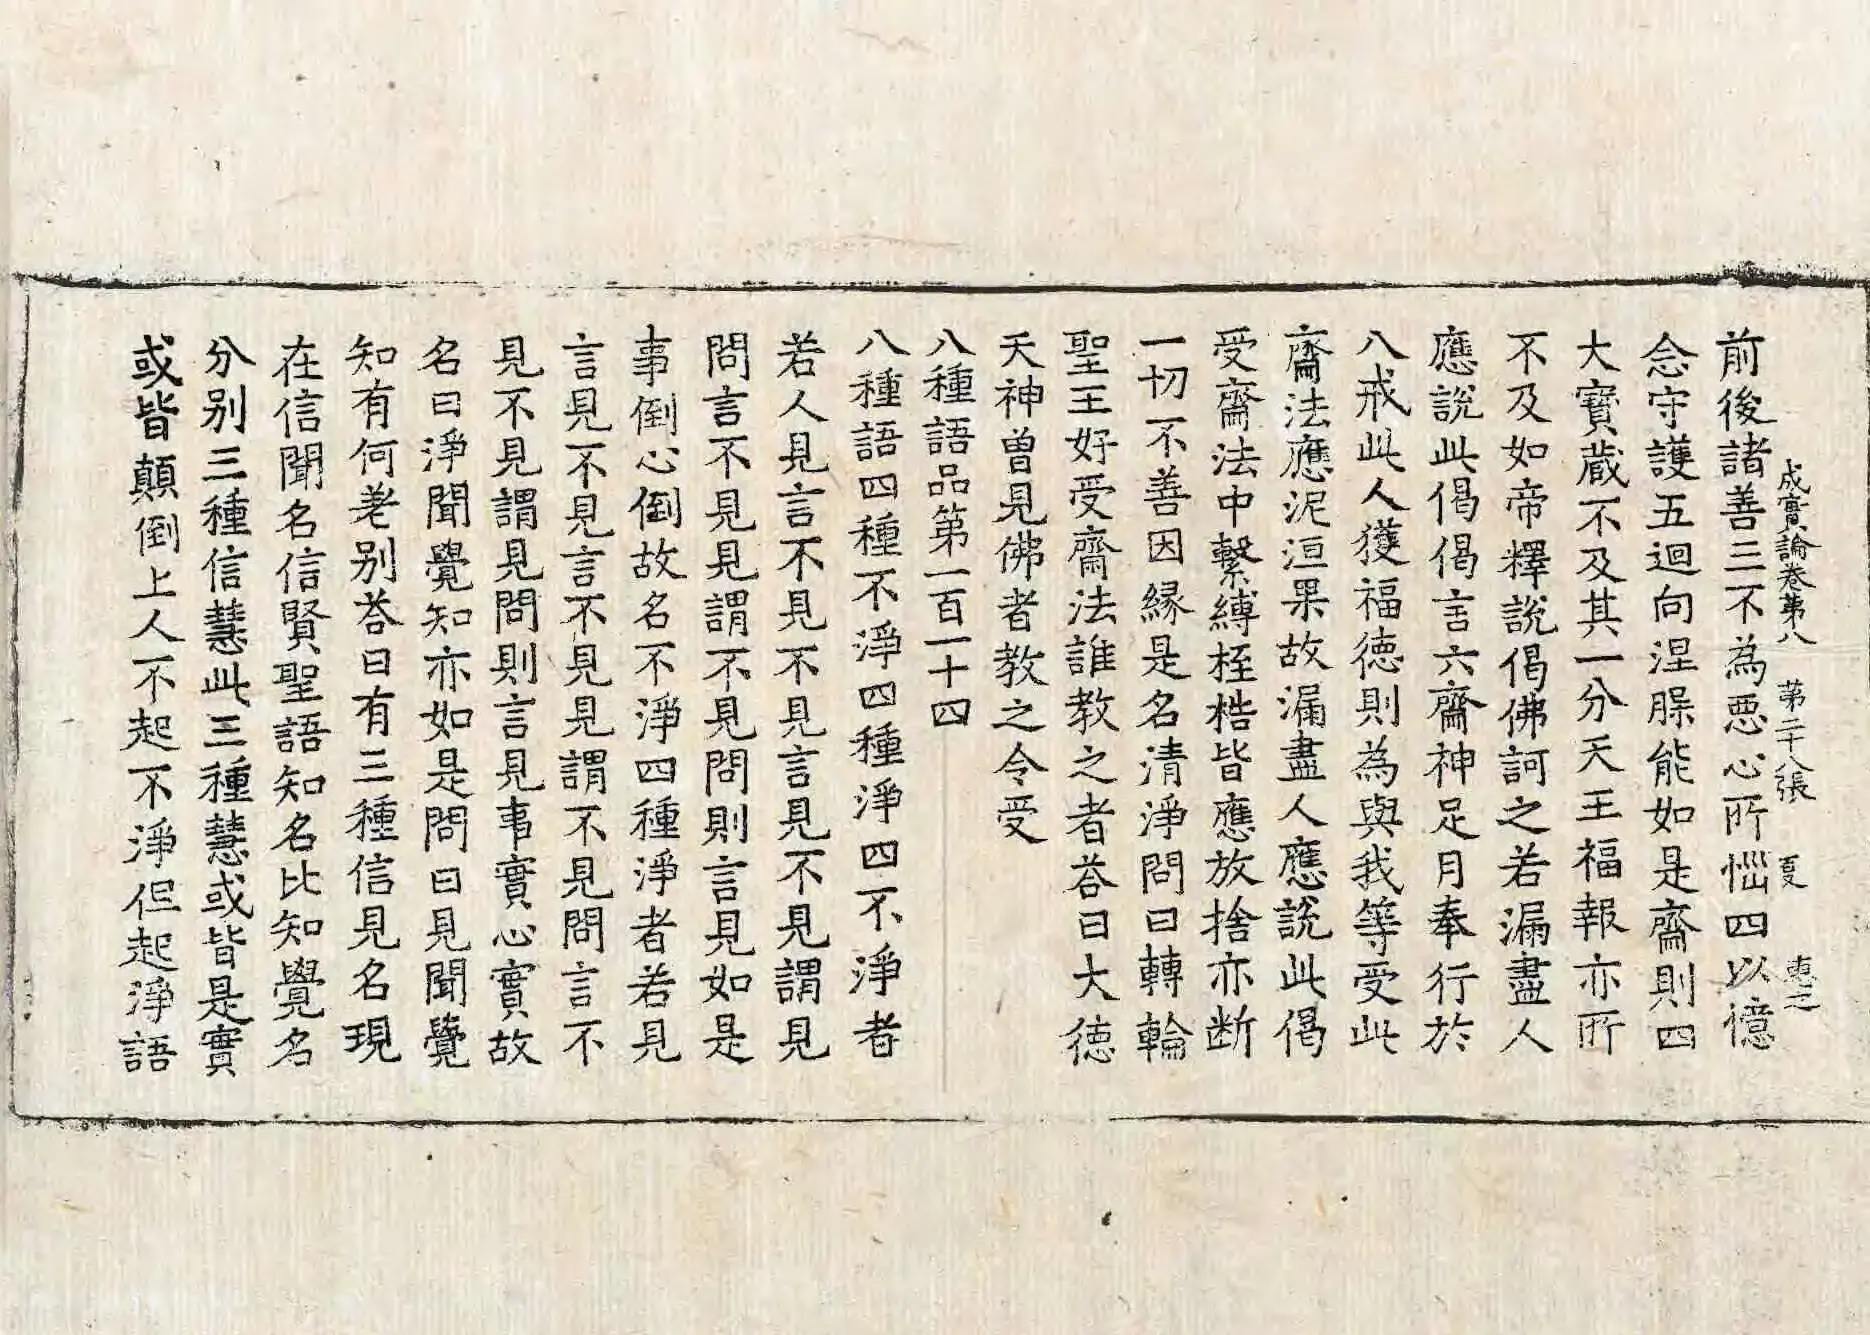 成實論卷第八 第二十八張 夏 惠之
前後諸善三不為惡心所惱四以憶
念守護五迴向涅槃能如是齋則四
大寶蔵不及其一分天王福報亦所
不及如帝釋說偈佛訶之若漏盡人
應說此偈偈言六齋神足月奉行於
八戒此人獲福徳則為與我等受此
齋法應泥洹果故漏盡人應說此偈
受齋法中繫縛桎梏皆應放捨亦断
一切不善因縁是名清淨問曰轉輪
聖王好受齋法誰教之者荅曰大徳
天神曽見佛者教之令受
八種語品第一百一十四
八種語四種不淨四種淨四不淨者
若人見言不見不見言見不見謂見
問言不見見謂不見問則言見如是
事倒心倒故名不淨四種淨者若見
言見不見言不見見謂不見問言不
見不見謂見問則言見事實心實故
名曰淨聞覺知亦如是問曰見聞覺
知有何差别荅曰有三種信見名現
在信聞名信賢聖語知名比知覺名
分别三種信慧此三種慧或皆是實
或皆顛倒上人不起不淨但起淨語